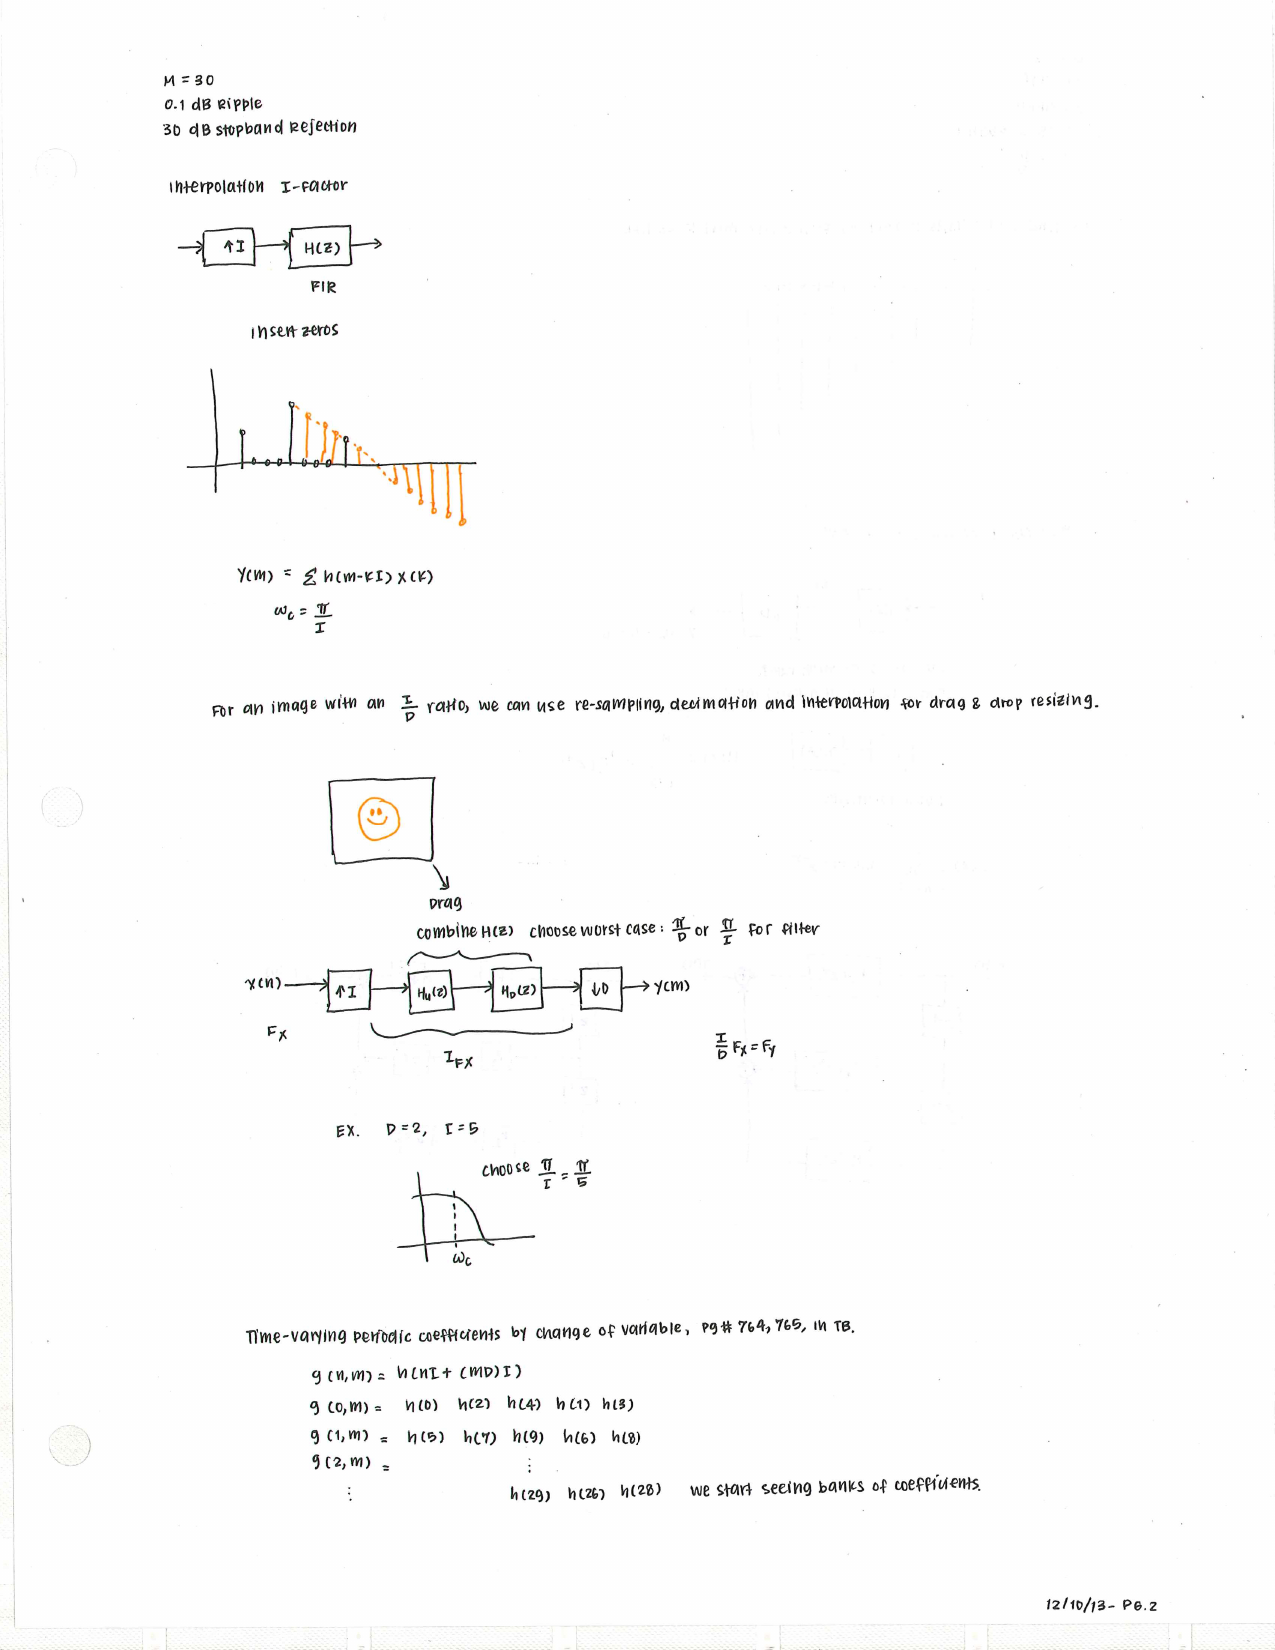 M = 30
0.1 dB Ripple
30 dB stopband Rejection
Interpolation I-factor
↑I H(z)
FIR
insert zeros
y(m) = Σ h(m-kI) x(k)
ωc = π/I
For an image with an I/D ratio, we can use re-sampling, decimation and interpolation for drag & drop resizing.
Drag
combine H(z) choose worst case: π/D or π/I for filter
x(n) ↑I Hu(z) HD(z) ↓D y(m)
Fx
IFX
I/D Fx = Fy
EX. D = 2, I = 5
choose π/I = π/5
ωc
Time-varying periodic coefficients by change of variable, pg# 764, 765, in TB.
g(n,m) = h(nI + (mD)I)
g(0,m) = h(0) h(2) h(4) h(1) h(3)
g(1,m) = h(5) h(7) h(9) h(6) h(8)
g(2,m) = ⋮
⋮ h(29) h(26) h(28) we start seeing banks of coefficients.
12/10/13- PG.2